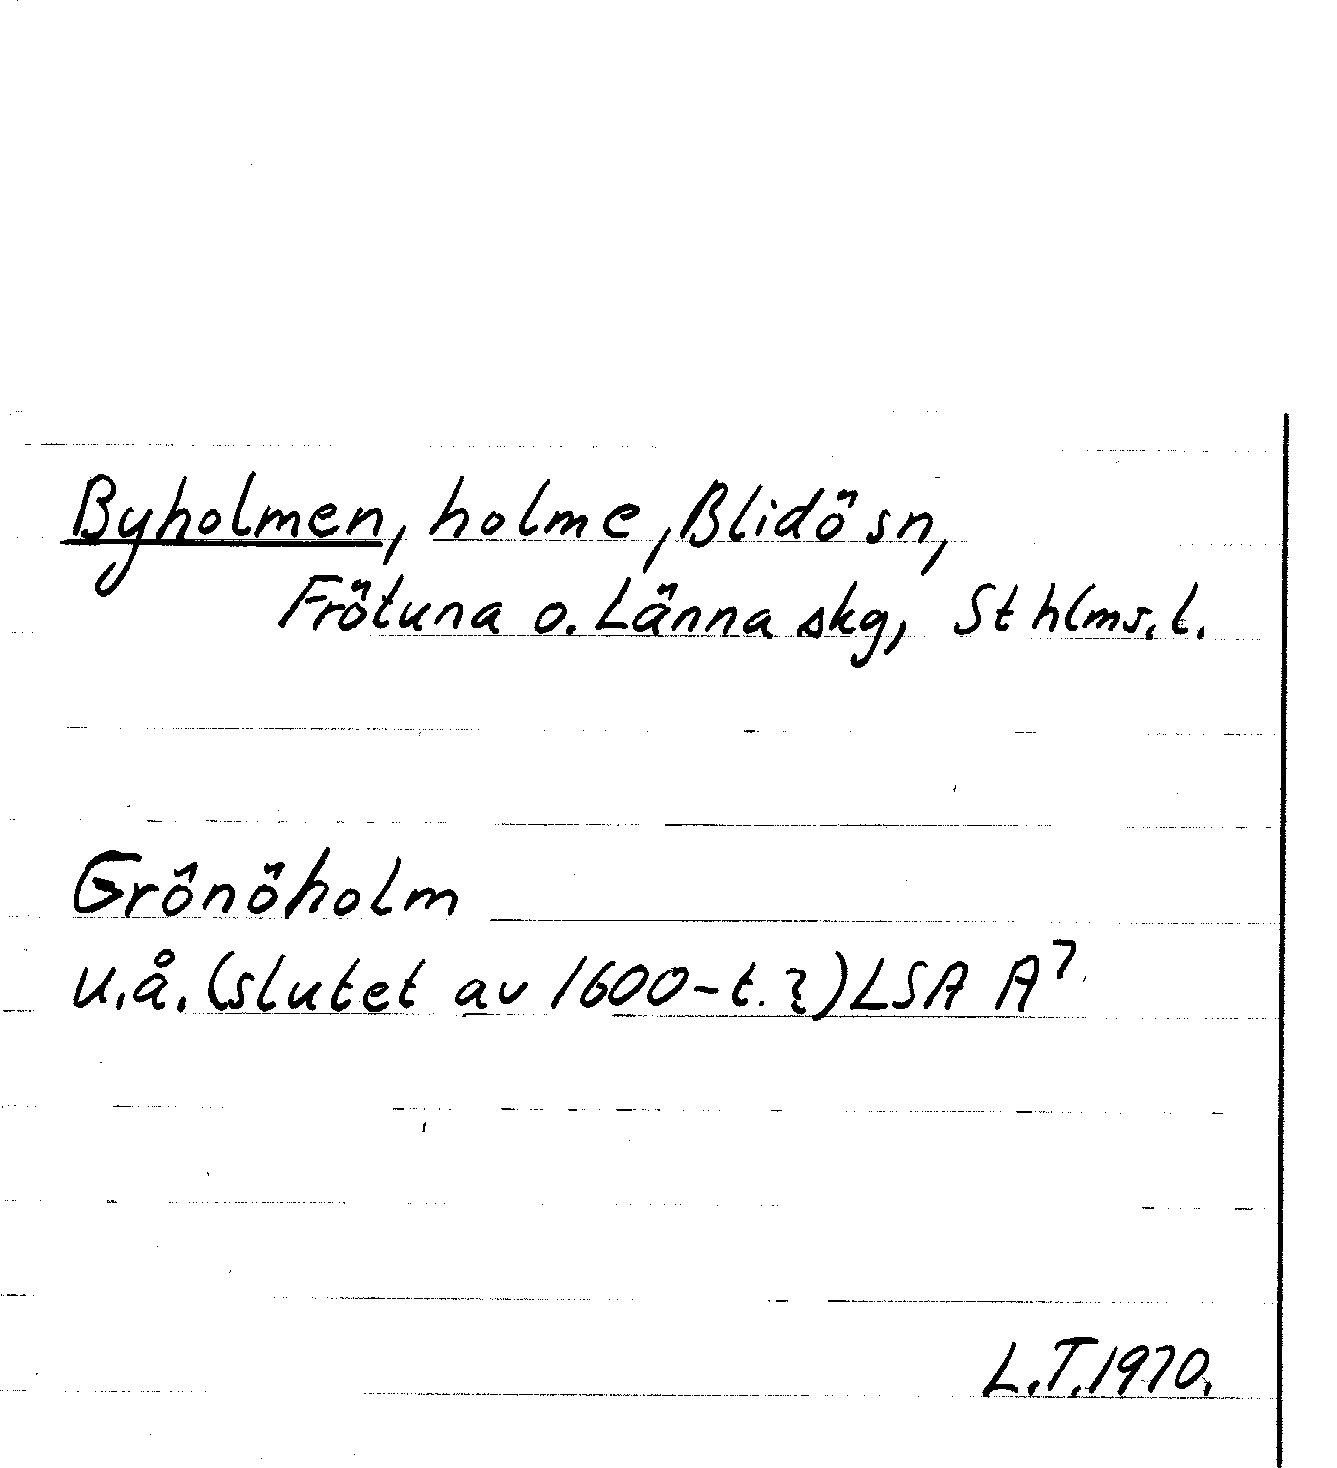 Byholmen, holme, Blidö sn,
Frötuna o. Länna skg, Sthlms. l.
Grönöholm
u.å. (slutet av 1600-t. ?) LSA A⁷
L.T. 1970.